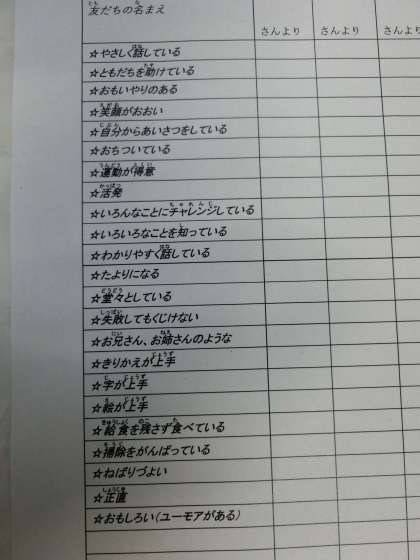 友だちの名まえ
さんより さんより さんより
☆やさしく話している
☆ともだちを助けている
☆おもいやりのある
☆笑顔がおおい
☆自分からあいさつをしている
☆おちついている
☆運動が得意
☆活発
☆いろんなことにチャレンジしている
☆いろいろなことを知っている
☆わかりやすく話している
☆たよりになる
☆堂々としている
☆失敗してもくじけない
☆お兄さん、お姉さんのような
☆きりかえが上手
☆字が上手
☆絵が上手
☆給食を残さず食べている
☆掃除をがんばっている
☆ねばりづよい
☆正直
☆おもしろい(ユーモアがある)